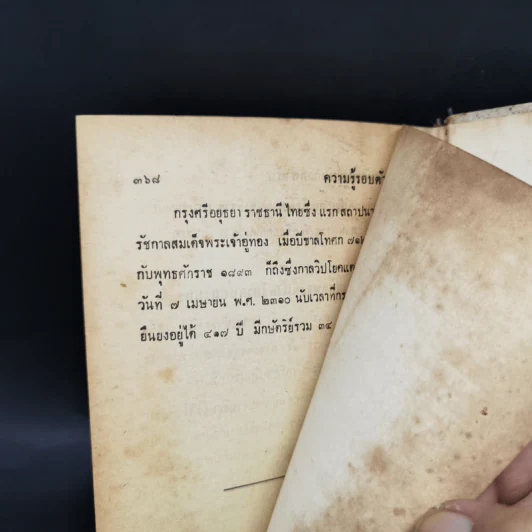 ๓๖๘ ความรู้รอบตัว
กรุงศรีอยุธยา ราชธานีไทยซึ่ง แรกสถาปนา
รัชกาลสมเด็จพระเจ้าอู่ทอง เมื่อปีขาลโทศก ๗๑๒
กับพุทธศักราช ๑๘๙๓ ก็ถึงซึ่งกาลวิปโยค
วันที่ ๗ เมษายน พ.ศ. ๒๓๑๐ นับเวลาที่กรุ
ยืนยงอยู่ได้ ๔๑๗ ปี มีกษัตริย์รวม ๓๔